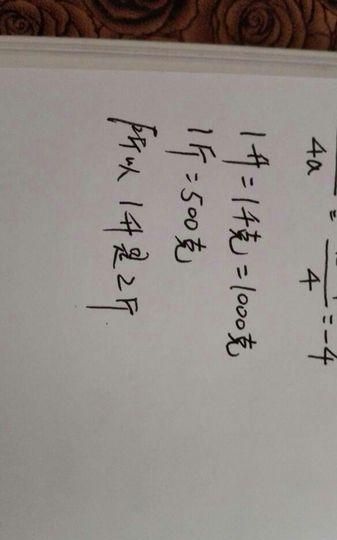 4a = 4 =-4
1升=1千克=1000克
1斤=500克
所以 1升是2斤